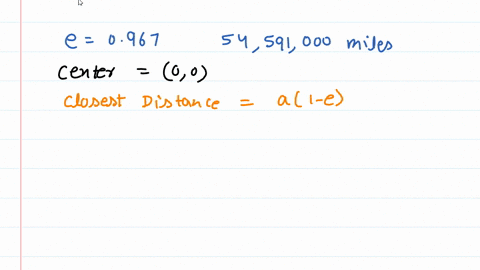 e = 0.967 54,591,000 miles
Center = (0,0)
Closest Distance = a(1-e)